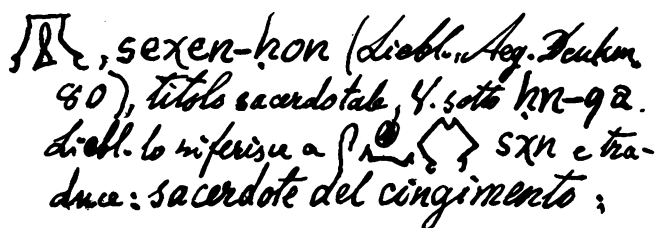 , sexen-ḥon (Liebl., Aeg. Denkm.
80), titolo sacerdotale, V. sotto ḥn-qa.
Liebl. lo riferisce a sxn e tra-
duce: sacerdote del cingimento;